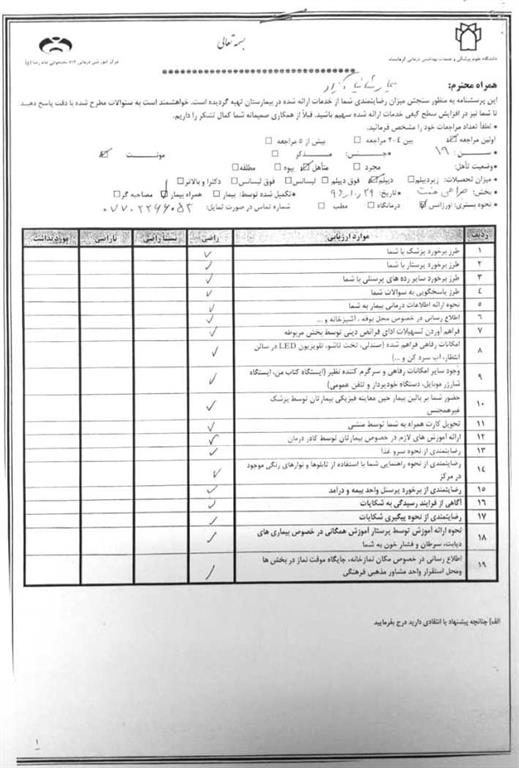 بسمه تعالی
دانشگاه علوم پزشکی و خدمات بهداشتی درمانی کرمانشاه
مرکز آموزشی درمانی
همراه محترم:
این پرسشنامه به منظور سنجش میزان رضایتمندی شما از خدمات ارائه شده در بیمارستان تهیه گردیده است. خواهشمند است به سئوالات مطرح شده با دقت پاسخ دهید
تا شما نیز در افزایش سطح کیفی خدمات ارائه شده سهیم باشید. قبلاً از همکاری صمیمانه شما کمال تشکر را داریم.
• لطفاً تعداد مراجعات خود را مشخص فرمائید.
اولین مراجعه بین ۲-۴ مراجعه بیش از ۵ مراجعه
• سن: ۱۹ •جنس: مذکر مونث
• وضعیت تأهل: مجرد متأهل بیوه مطلقه
• میزان تحصیلات: زیردیپلم دیپلم فوق دیپلم لیسانس فوق لیسانس دکترا و بالاتر
• بخش: جراحی •تاریخ: •تکمیل شده توسط: بیمار همراه بیمار مصاحبه گر
• نحوه بستری: اورژانس درمانگاه مطب شماره تماس در صورت تمایل:
ردیف موارد ارزیابی راضی نسبتا راضی ناراضی موردنداشت
۱ طرز برخورد پزشک با شما
۲ طرز برخورد پرستار با شما
۳ طرز برخورد سایر رده های پرسنلی با شما
۴ طرز پاسخگویی به سوالات شما
۵ نحوه ارائه اطلاعات درمانی بیمار به شما
۶ اطلاع رسانی در خصوص محل بوفه ، آشپزخانه و ...
۷ فراهم آوردن تسهیلات ادای فرائض دینی توسط بخش مربوطه
۸ امکانات رفاهی فراهم شده (صندلی، تخت تاشو، تلویزیون LED در سالن
انتظار، آب سرد کن و ...)
۹ وجود سایر امکانات رفاهی و سرگرم کننده نظیر (ایستگاه کتاب من، ایستگاه
شارژر موبایل، دستگاه خودپرداز و تلفن عمومی)
۱۰ حضور شما بر بالین بیمار حین معاینه فیزیکی بیمارتان توسط پزشک
غیرهمجنس
۱۱ تحویل کارت همراه به شما توسط منشی
۱۲ ارائه آموزش های لازم در خصوص بیمارتان توسط کادر درمان
۱۳ رضایتمندی از نحوه سرو غذا
۱۴ رضایتمندی از نحوه راهنمایی شما با استفاده از تابلوها و نوارهای رنگی موجود
در مرکز
۱۵ رضایتمندی از برخورد پرسنل واحد بیمه و درآمد
۱۶ آگاهی از فرایند رسیدگی به شکایات
۱۷ رضایتمندی از نحوه پیگیری شکایات
۱۸ نحوه ارائه آموزش توسط پرستار آموزش همگانی در خصوص بیماری های
دیابت، سرطان و فشار خون به شما
۱۹ اطلاع رسانی در خصوص مکان نمازخانه، جایگاه موقت نماز در بخش ها
ومحل استقرار واحد مشاور مذهبی فرهنگی
الف) چنانچه پیشنهاد یا انتقادی دارید درج بفرمایید
۱